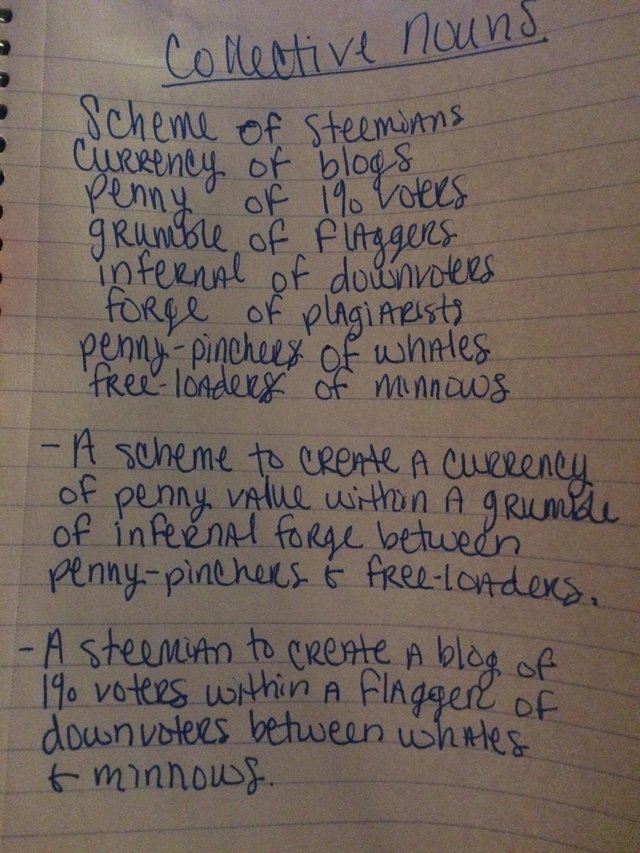 Collective Nouns
Scheme of Steemians
Currency of blogs
penny of 1% voters
grumble of flaggers
infernal of downvoters
forge of plagiarists
penny-pinchers of whales
free-loaders of minnows
- A scheme to create a currency
of penny value within a grumble
of infernal forge between
penny-pinchers & free-loaders.
- A steemian to create a blog of
1% voters within a flagger of
downvoters between whales
& minnows.